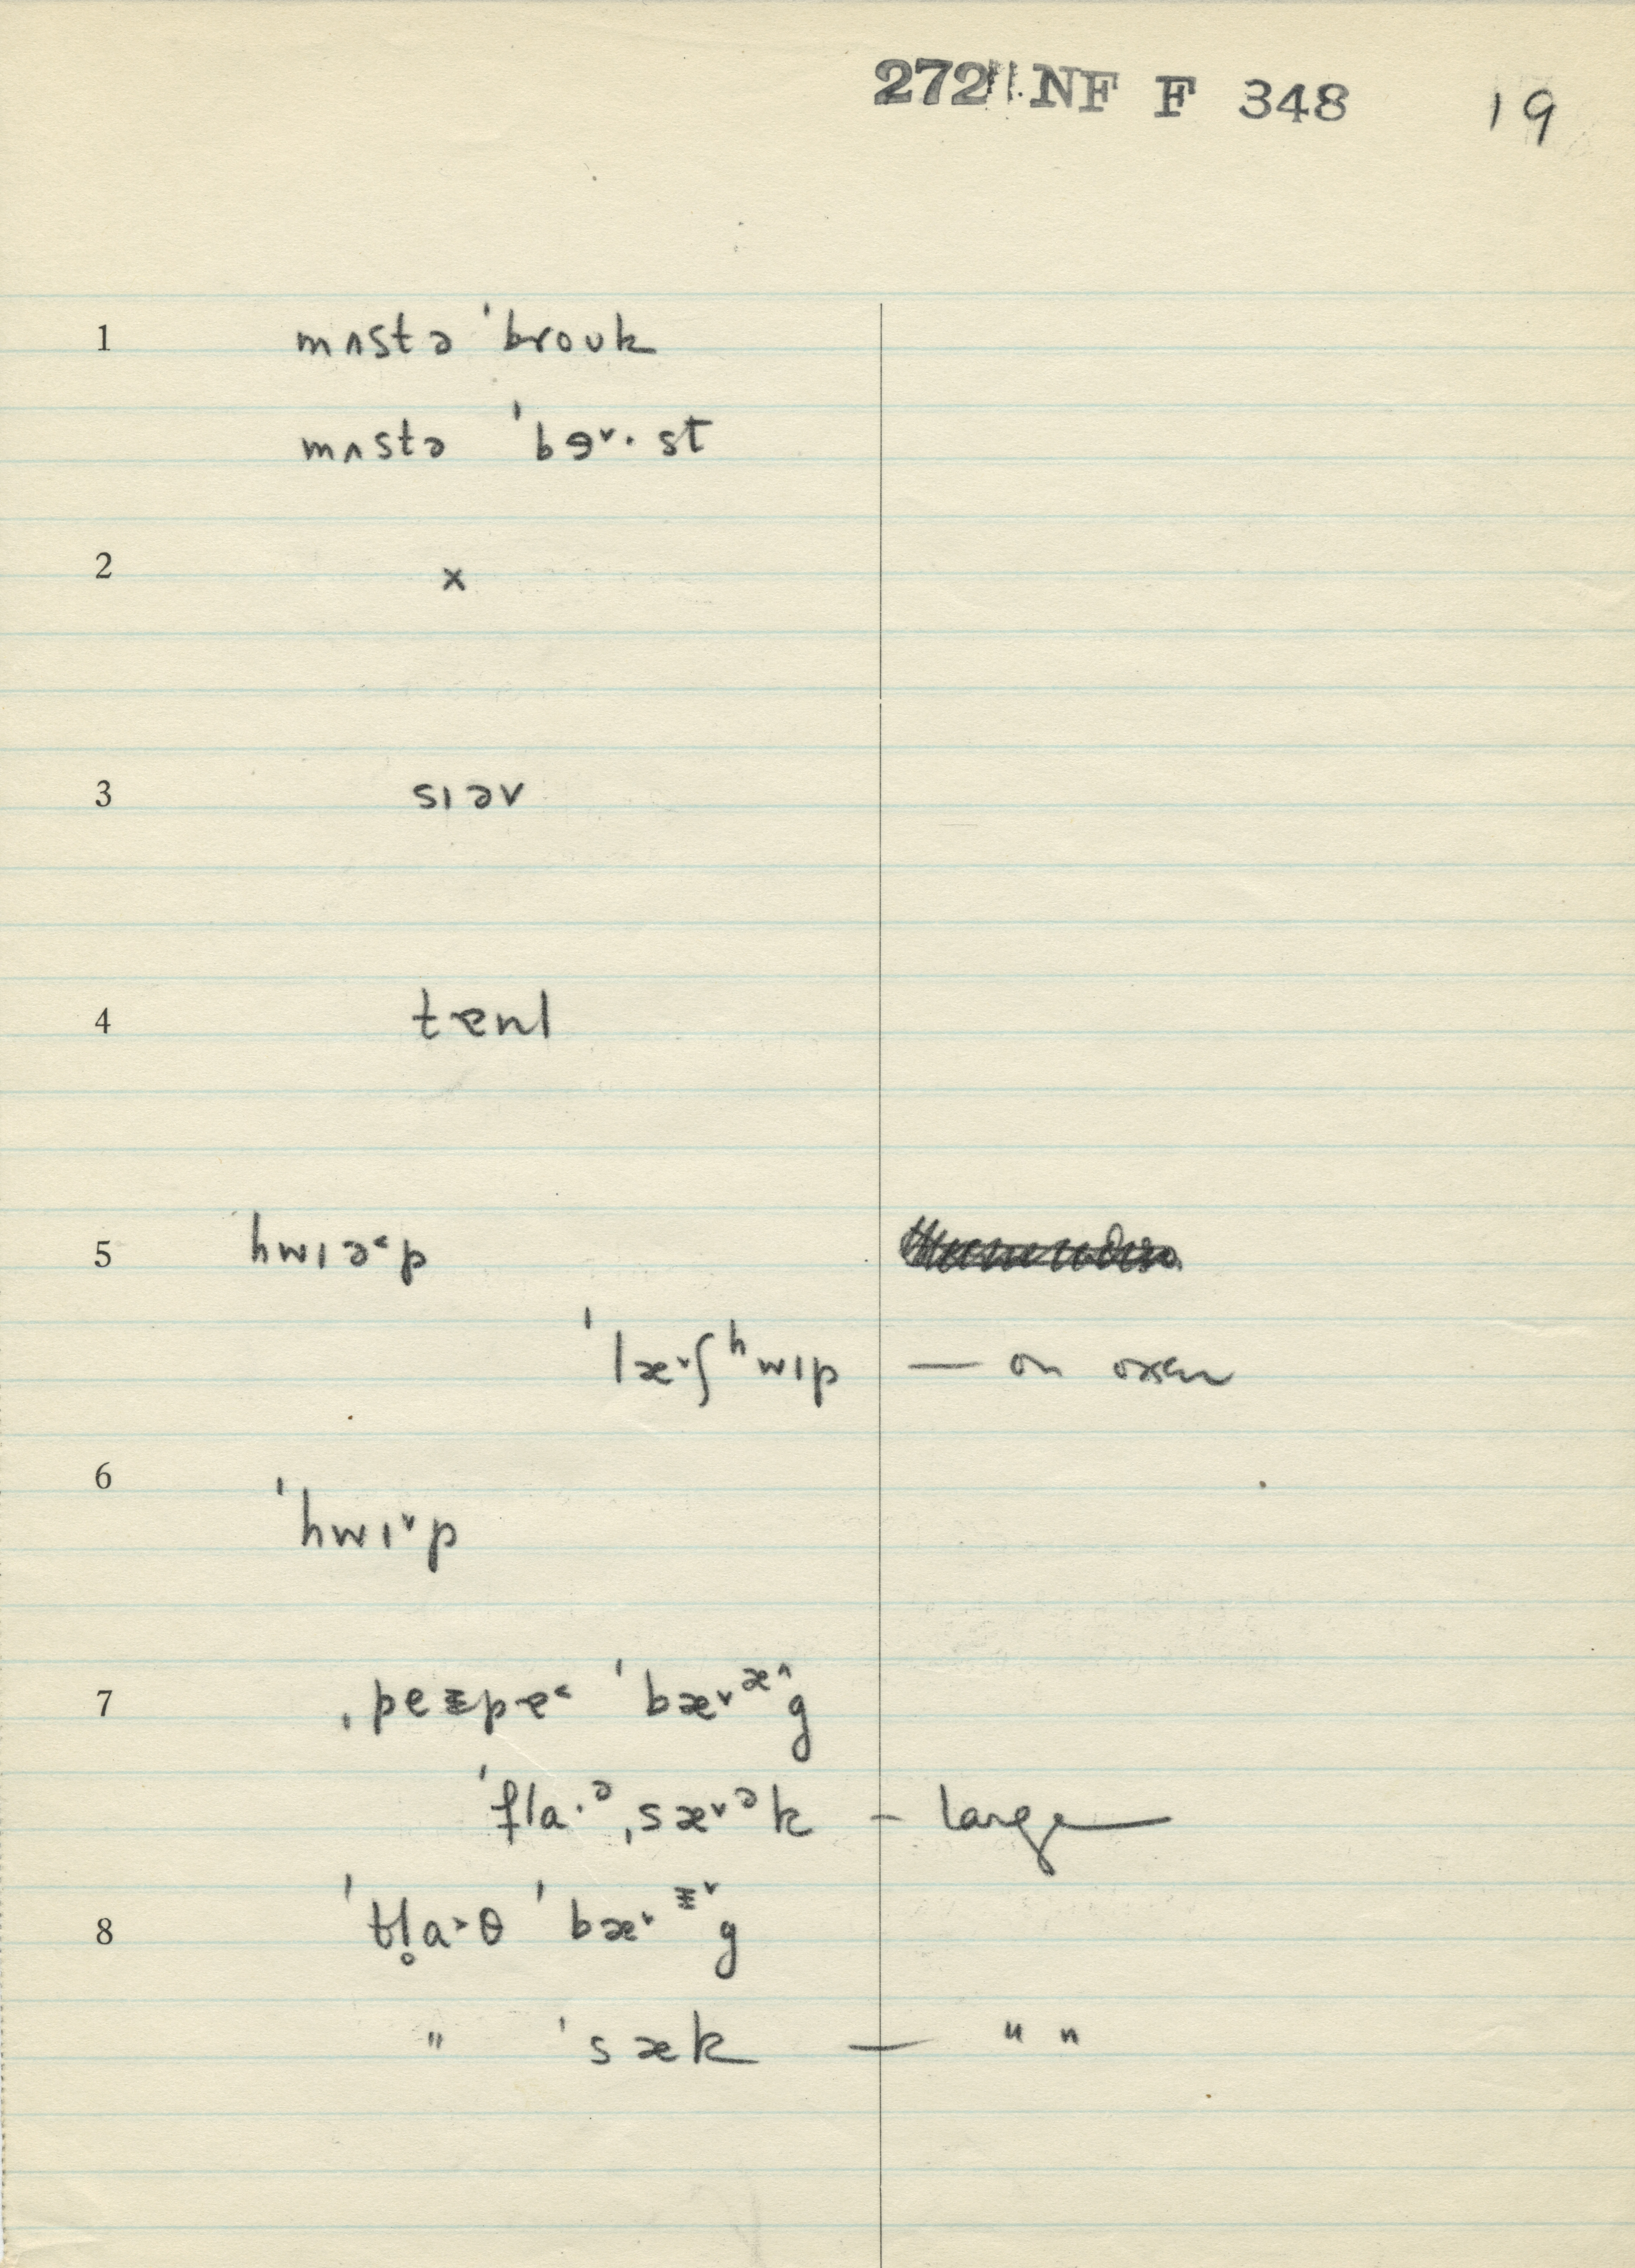 272 NF F 348 19
1 mʌstə ˈbroʊk
mʌstə ˈbɘ˅· st
2 x
3 sɪəv
4 tɐnl
5 hwɪə˂p
ˈlæ˅ʃʰwɪp — on oxen
6 ˈhwɪ˅p
7 ˌpeᵻpɐ˂ ˈbæ˅ᵆ˄g
ˈfla·ᵊˌsæ˅ᵊk – large
8 ˈtl̥a˃θ ˈbæ˅ᵻ˅g
" ˈsæk — " "